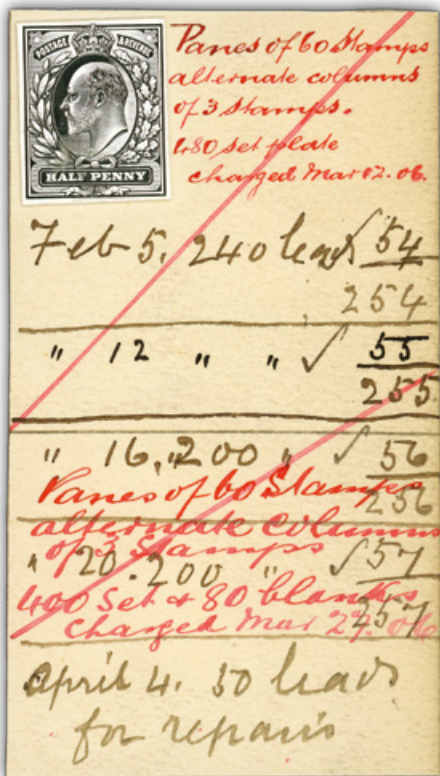 POSTAGE & REVENUE
HALF PENNY
Panes of 60 Stamps
alternate columns
of 3 Stamps.
480 set plate
charged Mar 12. 06.
Feb 5. 240 leads ✓ 54
254
" 12 " " ✓ 55
255
" 16. 200 " ✓ 56
256
Panes of 60 Stamps
alternate columns
of 3 Stamps
" 20. 200 " ✓ 57
257
400 Set & 80 blanks
charged Mar 27. 06
April 4. 50 leads
for repairs